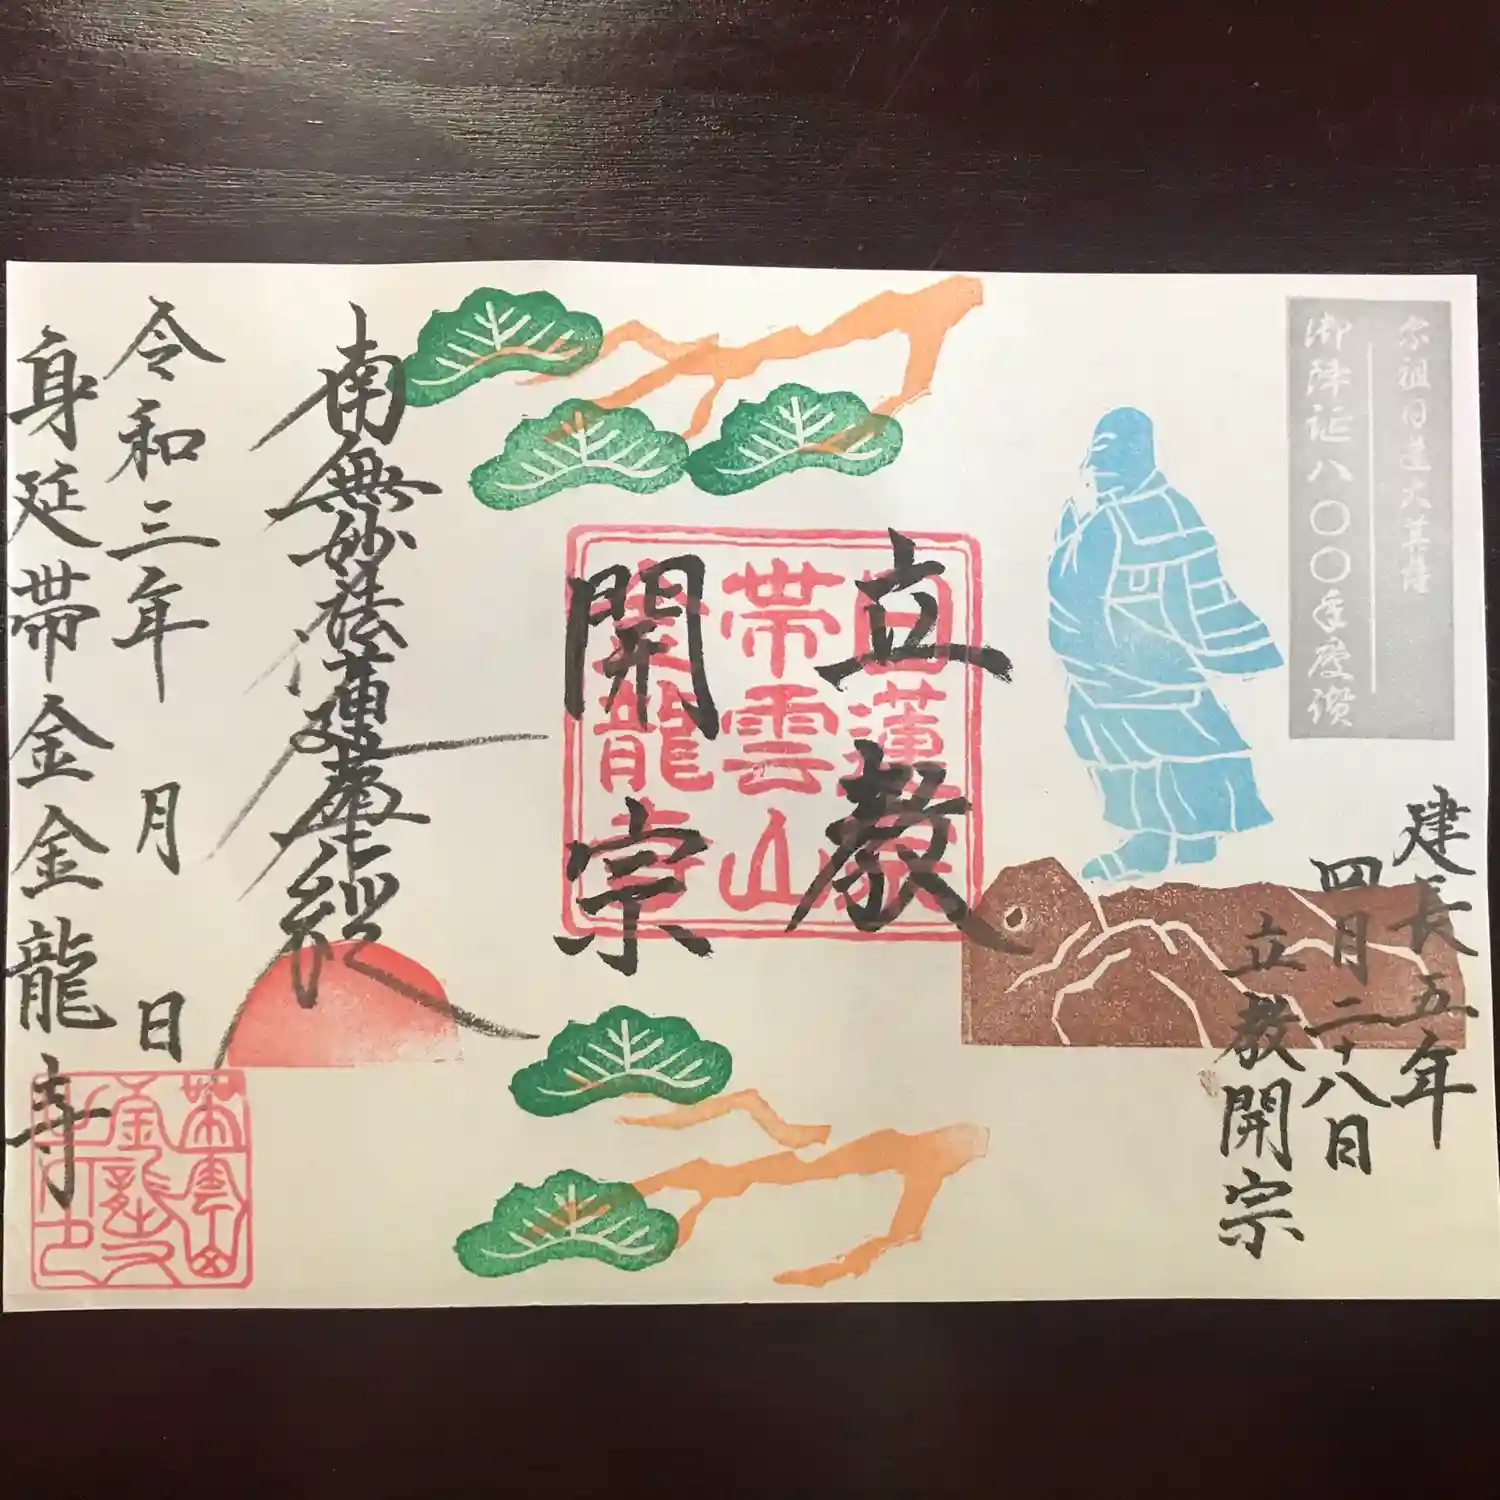 宗祖日蓮大菩薩
御降誕八〇〇年慶讃
建長五年
四月二十八日
立教開宗
立教
開宗
日蓮宗
帯雲山
金龍寺
南無妙法蓮華経
令和三年 月 日
身延帯金金龍寺
帯雲山
金龍寺